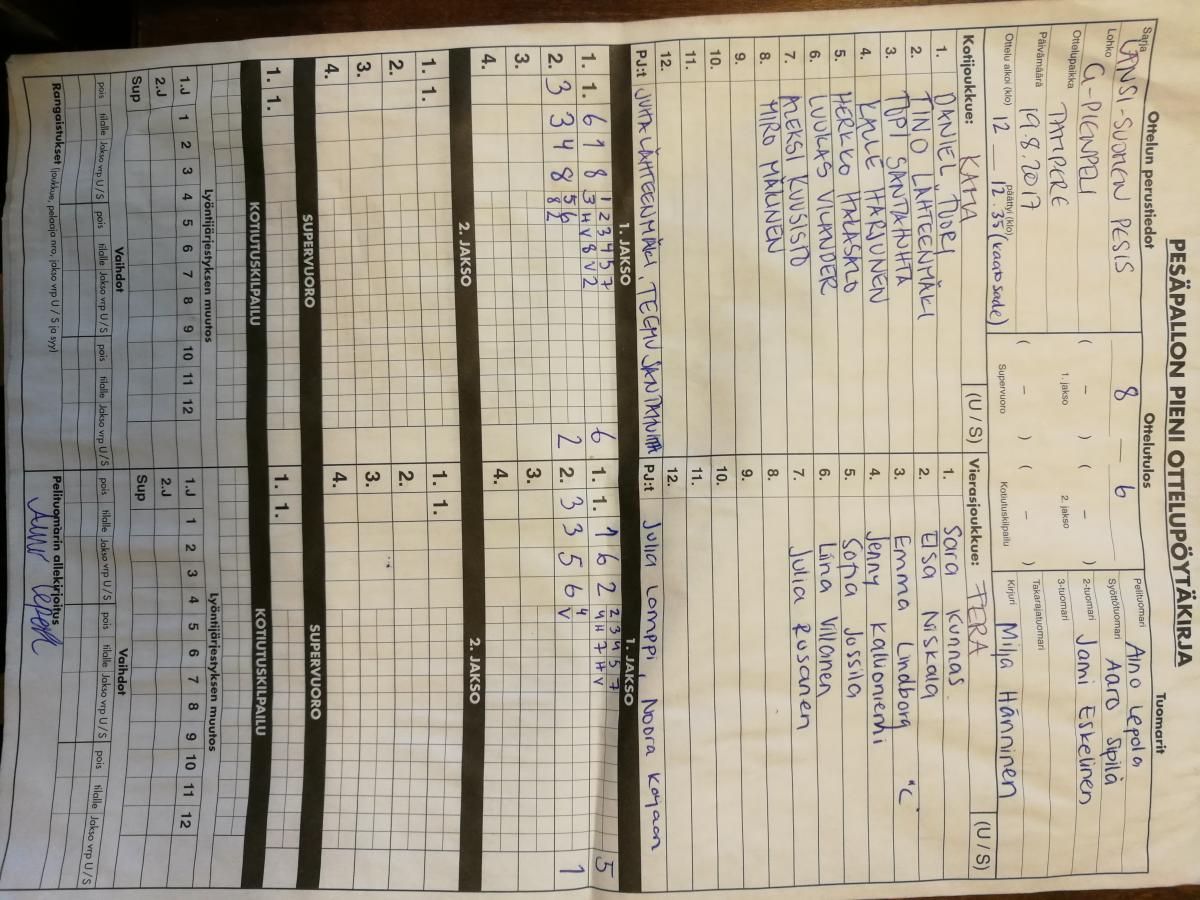 PESÄPALLON PIENI OTTELUPÖYTÄKIRJA
Ottelun perustiedot
Sarja LÄNSI-SUOMEN PESIS
Lohko G-PIENPELI
Ottelupaikka TAMPERE
Päivämäärä 19.8.2017
Ottelu alkoi (klo) 12 päättyi (klo) 12.35 (kaatosade)
Ottelutulos
8 – 6
( – ) ( – )
1. jakso 2. jakso
( – ) ( – )
Supervuoro Kotiutuskilpailu
Tuomarit
Pelituomari Aino Lepola
Syöttötuomari Aaro Sipilä
2-tuomari Jami Eskelinen
3-tuomari
Takarajatuomari
Kirjuri Milja Hänninen
Kotijoukkue: KAMA (U / S)
1. DANIEL TUORI
2. TINO LÄHTEENMÄKI
3. TOPI SANTAHUHTA
4. KALLE HARJUNEN
5. HERKKO HALASALO
6. LUUKAS VILANDER
7. ALEKSI KUUSISTO
8. MIRO MÄLINEN
9.
10.
11.
12.
PJ:t JUHA LÄHTEENMÄKI, TEEMU SANTAHUHTA
Vierasjoukkue: PERA (U / S)
1. Sara Kunnas
2. Elsa Niskala
3. Emma Lindborg "C"
4. Jenny Kallioniemi
5. Sofia Jossila
6. Liina Villainen
7. Julia Rusanen
8.
9.
10.
11.
12.
PJ:t Julia Lamppi, Noora Karjaan
1. JAKSO 1. JAKSO
1. 1. 6 1 8 3 H V 8 V 2 6
1 2 3 4 5 7
2. 3 3 4 8 5 6 2
8 2
3.
4.
1. 1. 1 6 2 4 H 7 H V 5
2 3 4 5 7
2. 3 3 5 6 4 1
V
3.
4.
2. JAKSO 2. JAKSO
1. 1. 1. 1.
2. 2.
3. 3.
4. 4.
SUPERVUORO SUPERVUORO
1. 1. 1. 1.
KOTIUTUSKILPAILU KOTIUTUSKILPAILU
Lyöntijärjestyksen muutos Lyöntijärjestyksen muutos
1.J 1 2 3 4 5 6 7 8 9 10 11 12 1.J 1 2 3 4 5 6 7 8 9 10 11 12
2.J 2.J
Sup Sup
Vaihdot Vaihdot
pois tilalle Jakso vrp U / S pois tilalle Jakso vrp U / S pois tilalle Jakso vrp U / S pois tilalle Jakso vrp U / S pois tilalle Jakso vrp U / S pois tilalle Jakso vrp U / S
Rangaistukset (joukkue, pelaaja nro, jakso vrp U / S ja syy)
Pelituomarin allekirjoitus
Aino Lepola